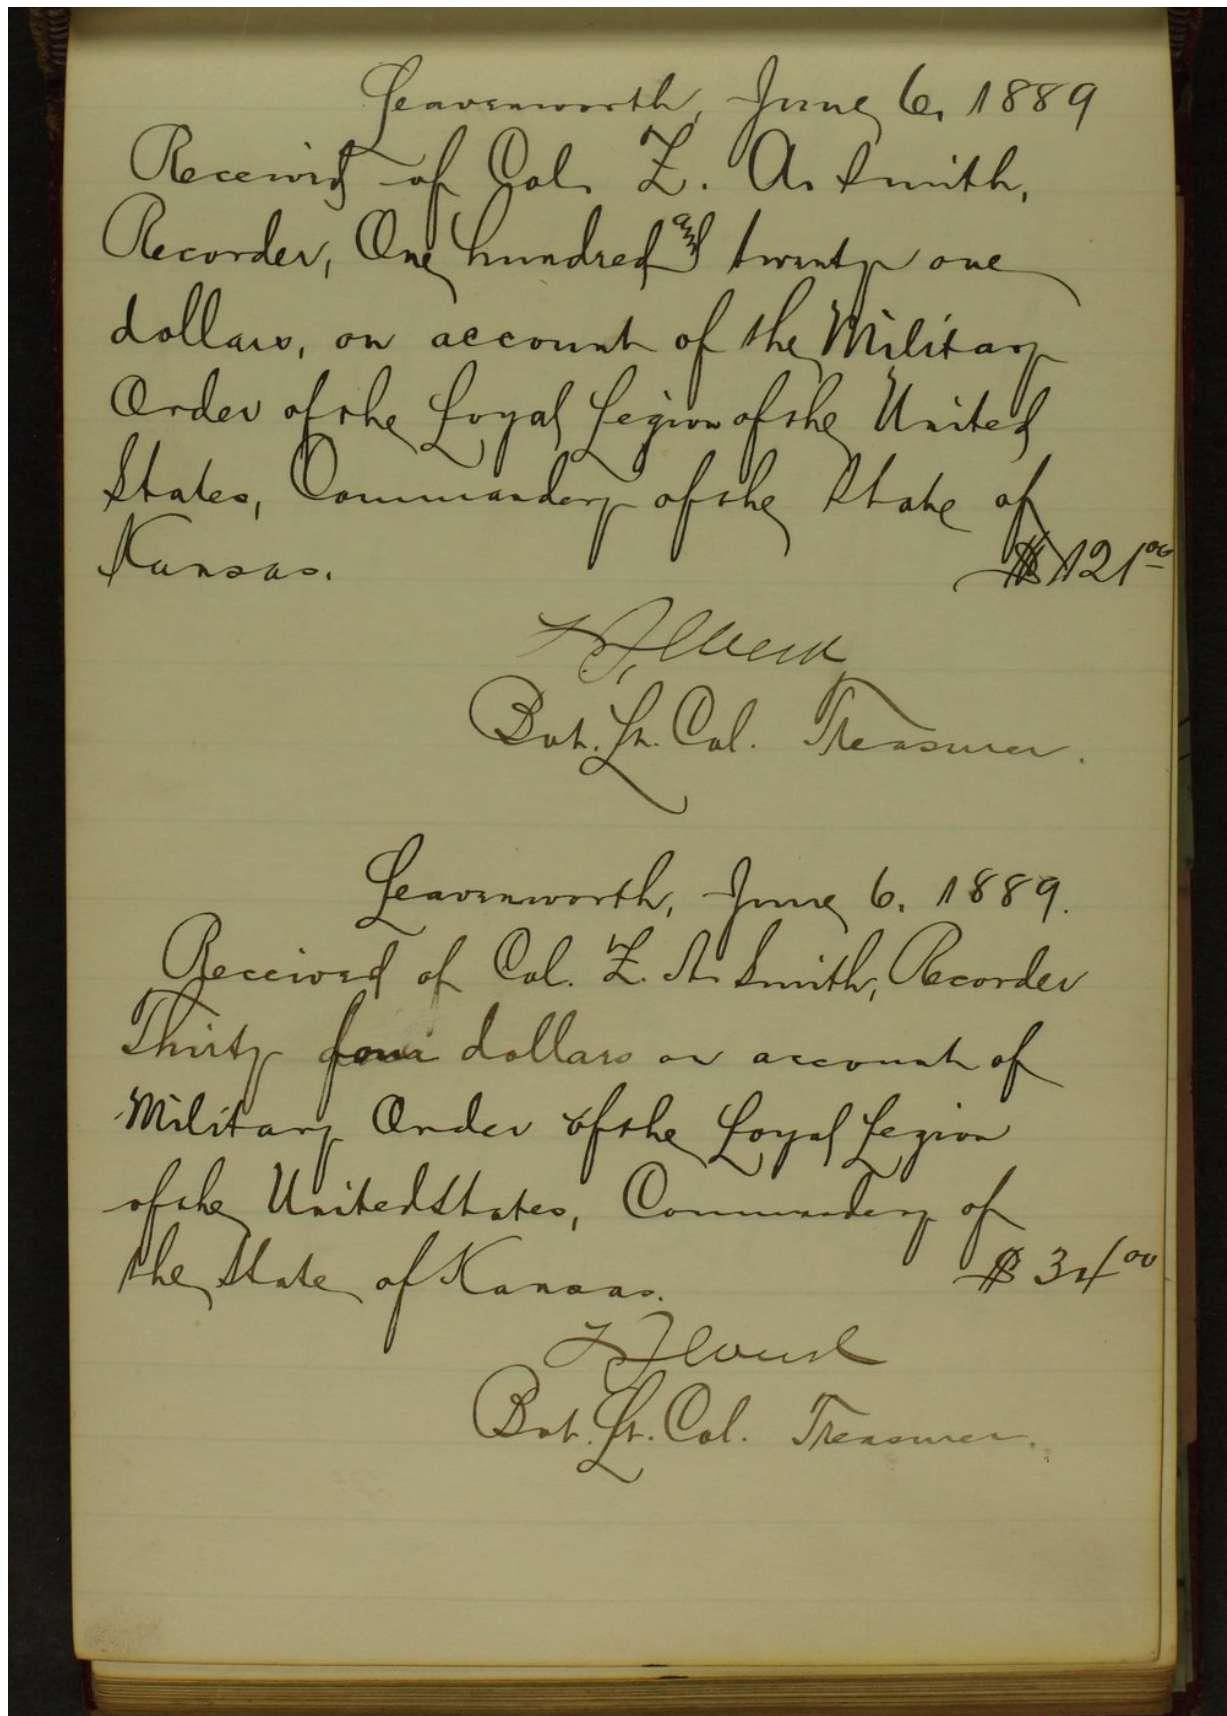 Leavenworth, June 6, 1889
Received of Col. Z. A. Smith,
Recorder, One hundred and twenty one
dollars, on account of the Military
Order of the Loyal Legion of the United
States, Commandery of the State of
Kansas. $121 00
Bvt. Lt. Col. Treasurer.
Leavenworth, June 6. 1889.
Received of Col. Z. A. Smith, Recorder
Thirty four dollars on account of
Military Order of the Loyal Legion
of the United States, Commandery of
the State of Kansas. $34 00
Bvt. Lt. Col. Treasurer.